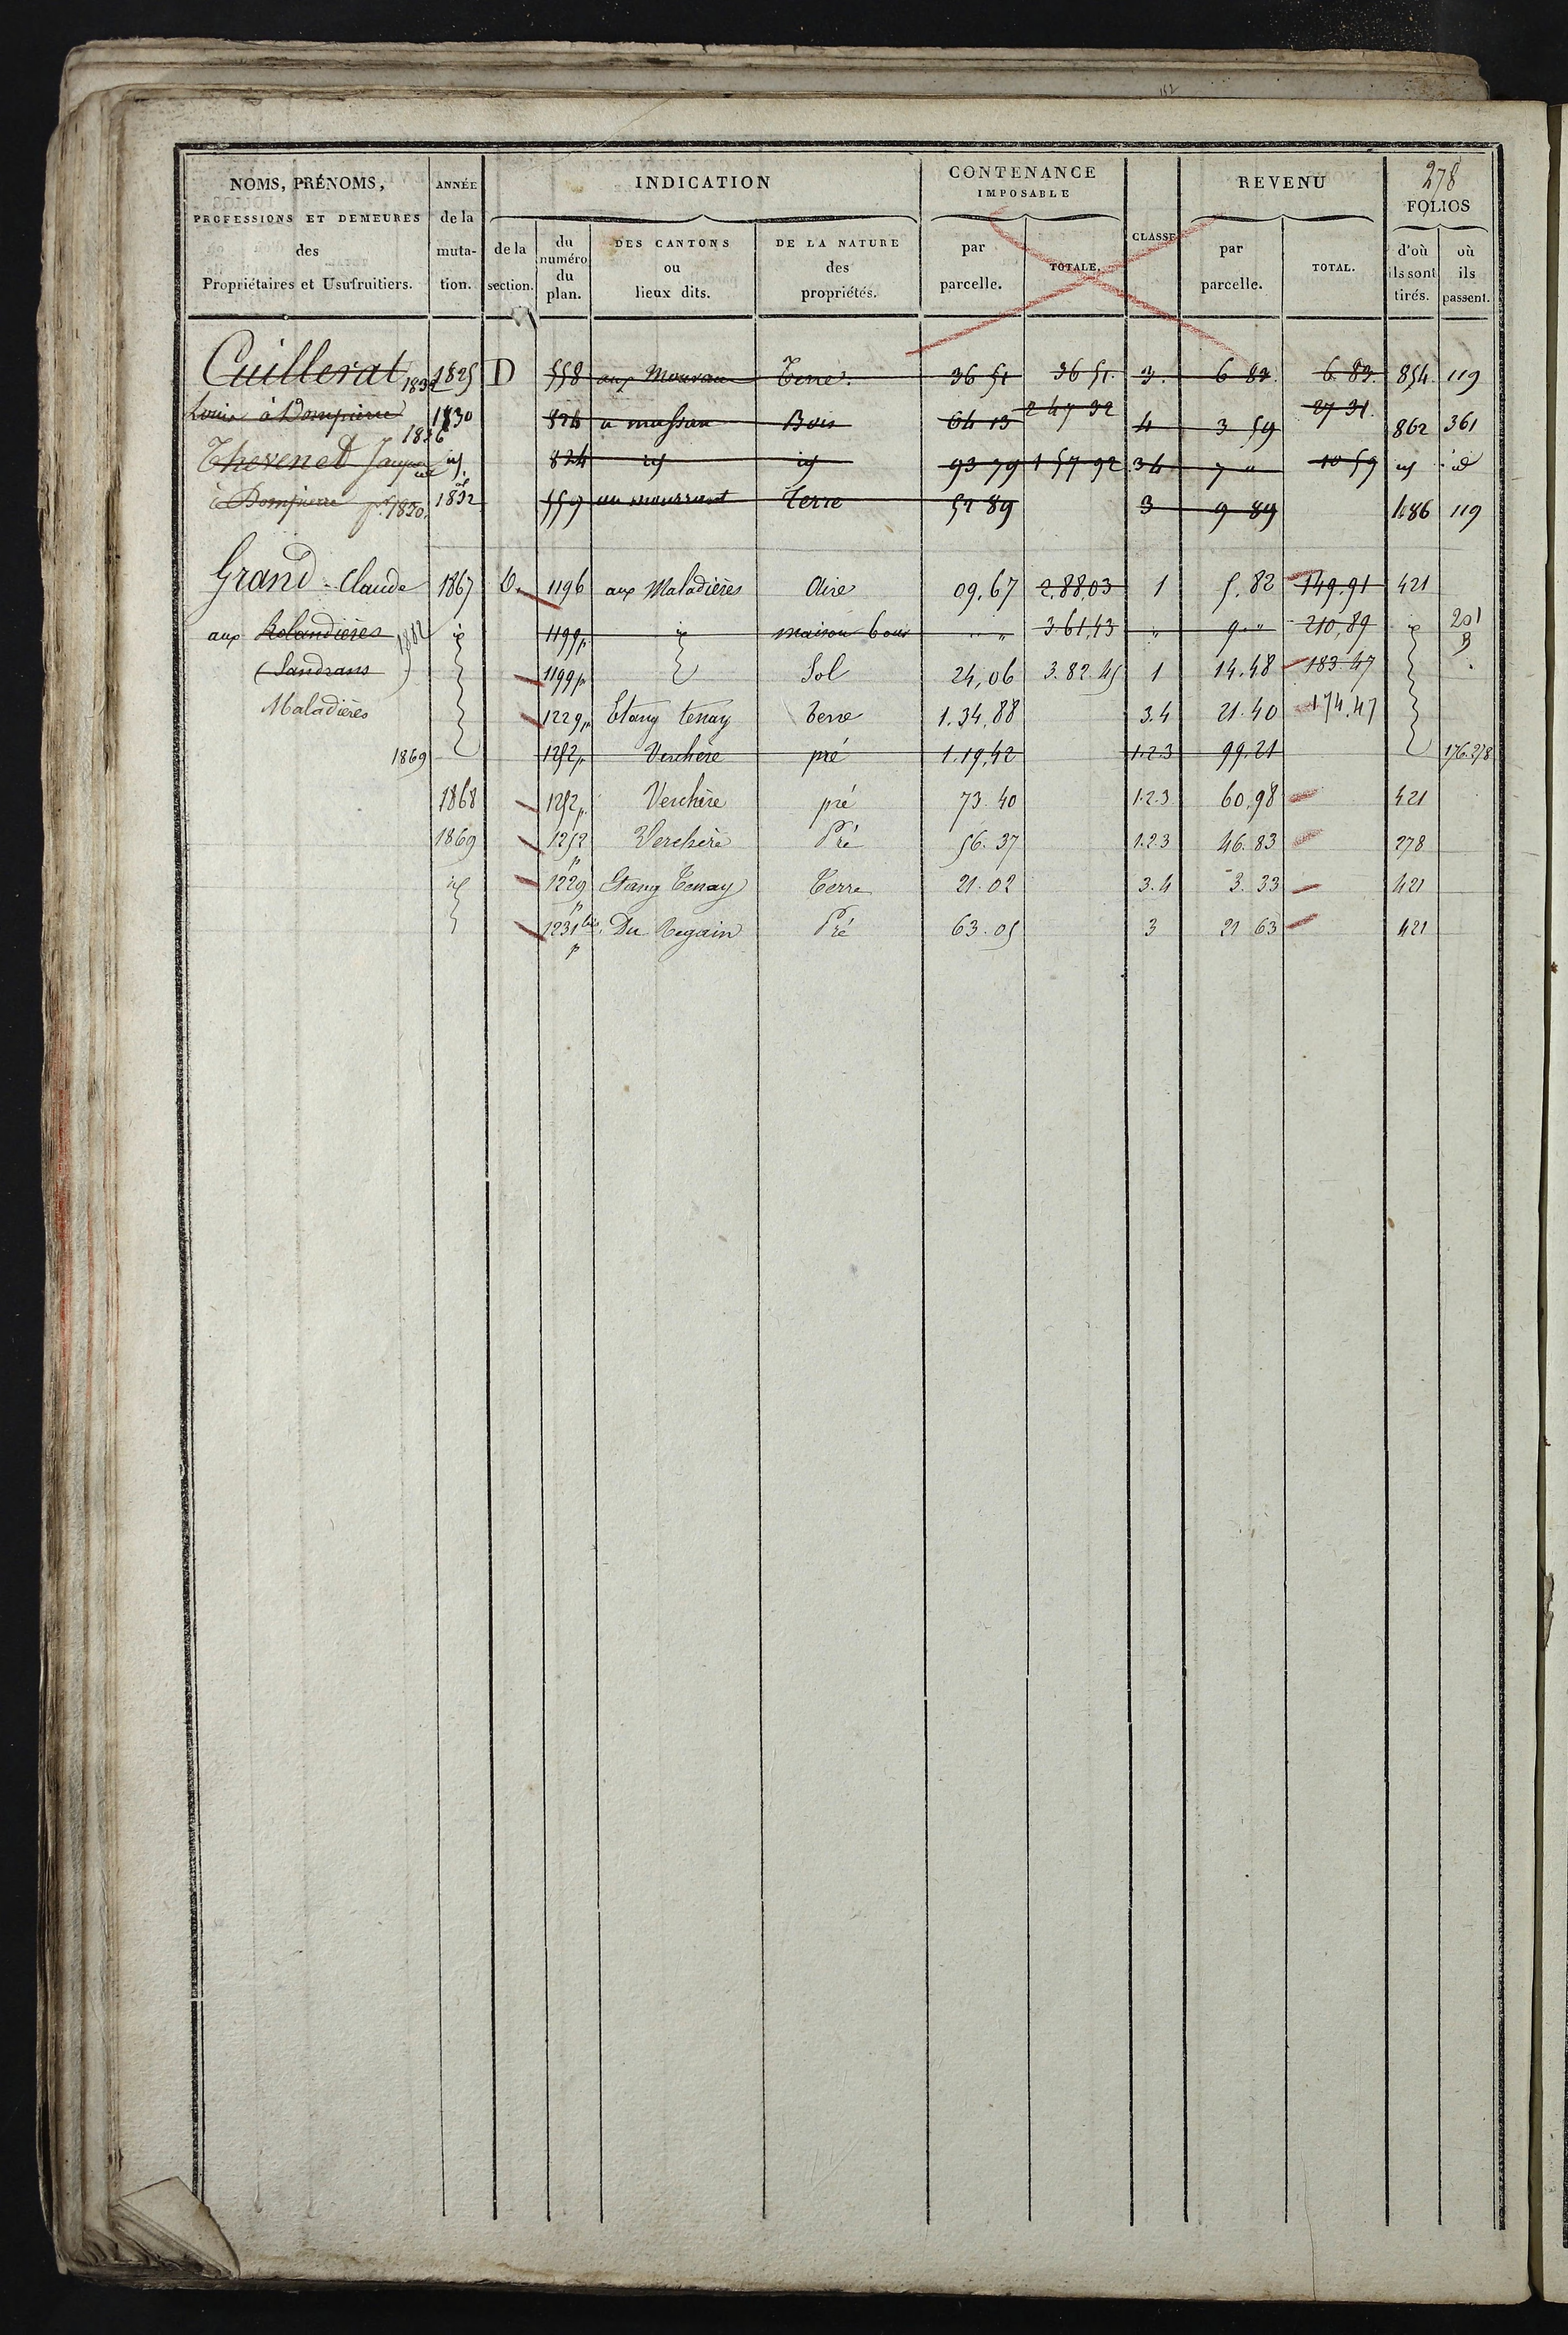 278
NOMS, PRÉNOMS, PROFESSIONS ET DEMEURES des Propriétaires et Usufruitiers. | ANNÉE de la muta- tion. | INDICATION | CONTENANCE IMPOSABLE | CLASSE | REVENU | FOLIOS
de la section. | du numéro du plan. | DES CANTONS ou lieux dits. | DE LA NATURE des propriétés. | par parcelle. | TOTALE. | par parcelle. | TOTAL. | d'où ils sont tirés. | où ils passent.
Cuillerat | 1825 | D | 558 | aux | Terre. | 36 51 | 36 51. | 3. | 6 83. | 6. 83. | 854. | 119
Louis à Dompierre | 1830 | 824 | a massan | Bois | 64 13 | 2 47 32 | 4 | 3 59 | 27 31. | 862 | 361
1836
Thevenet | id. | 824 | id | id | 93 79 | 1 57 92 | 3 4 | 7 " | 10 59 | id | id
à Dompierre pr. 1830. | 1832 | 559 | au mourrant | Terre | 57 89 | 3 | 9 89 | 486 | 119
Grand - Claude | 1867 | 1196 | aux Maladières | Aire | 09.67 | 2.88.03 | 1 | 5.82 | 149.91 | 421
aux Rolandières 1882 | id | 1199p | id | maison Cour | " " | 3.61.43 | " | 9. " | 210,89 | id | 201 B
(Sandrans) | 1199p | Sol | 24,06 | 3.82.45 | 1 | 14.48 | 183.47
Maladières | 1229p | Etang tenay | terre | 1.34,88 | 3.4 | 21.40 | 174.47
1869 | 1252p | Verchère | pré | 1.19,42 | 1.2.3 | 99.21 | 176.278
1868 | 1252p | Verchère | pré | 73.40 | 1.2.3 | 60,98 | 421
1869 | 1252 p | Verchère | Pré | 56.37 | 1.2.3 | 46.83 | 278
id | 1229 p | Etang Tenay | Terre | 21.02 | 3.4 | 3.33 | 421
1231 bis p | Du Regain | Pré | 63.05 | 3 | 21 63 | 421